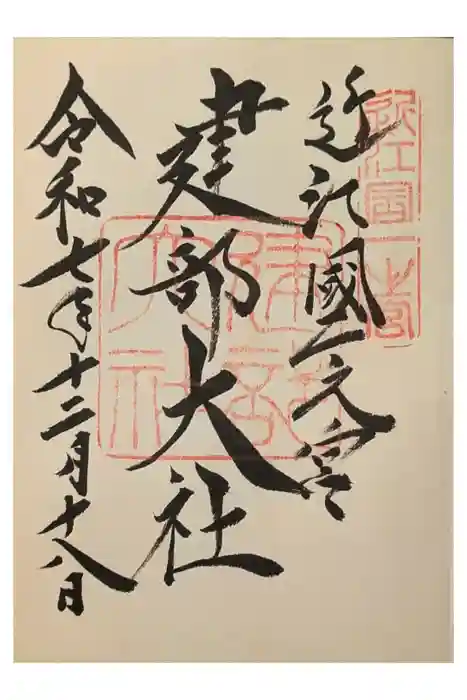 近江國一之宮
近江國一之宮
建部大社
建部大社
令和七年十二月十八日